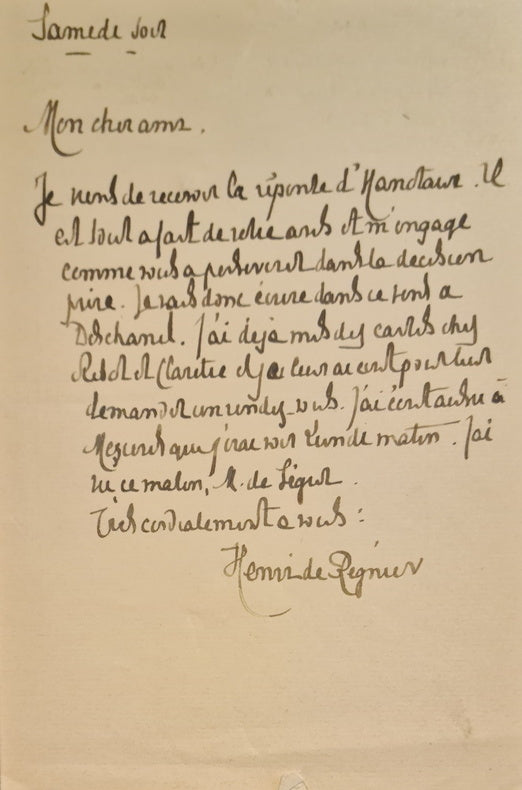 Samedi soir
Mon cher ami,
Je viens de recevoir la réponse d'Hanotaux. Il
est tout a fait de votre avis et m'engage
comme vous a perseverer dans la decision
prise. Je vais donc écrire dans ce sens a
Deschanel. J'ai déja mis des cartes chez
Ribot et Claretie et je leur ai écrit pour leur
demander un rendez-vous. J'ai écrit aussi à
Mezieres que j'irai voir Lundi matin. J'ai
vu ce matin, M. de Ségur.
Très cordialement a vous :
Henri de Régnier